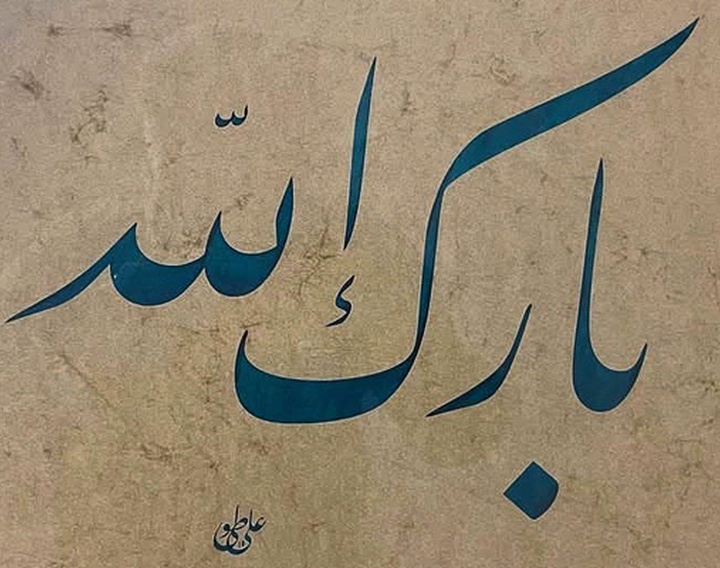 بارك الله
علي طوي